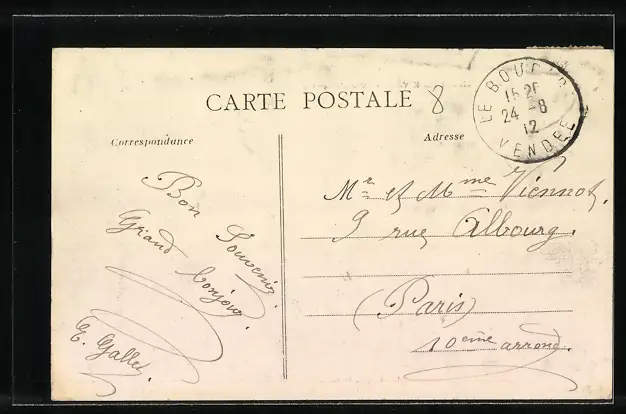 CARTE POSTALE 8
LE BOU
15 2
24 -8
12
VENDEE
Correspondance
Adresse
Bon Souvenir.
Grand bonjour.
E. Gallet.
Mr et Mme Viennot.
9 rue Albourg.
(Paris)
10eme arrond.